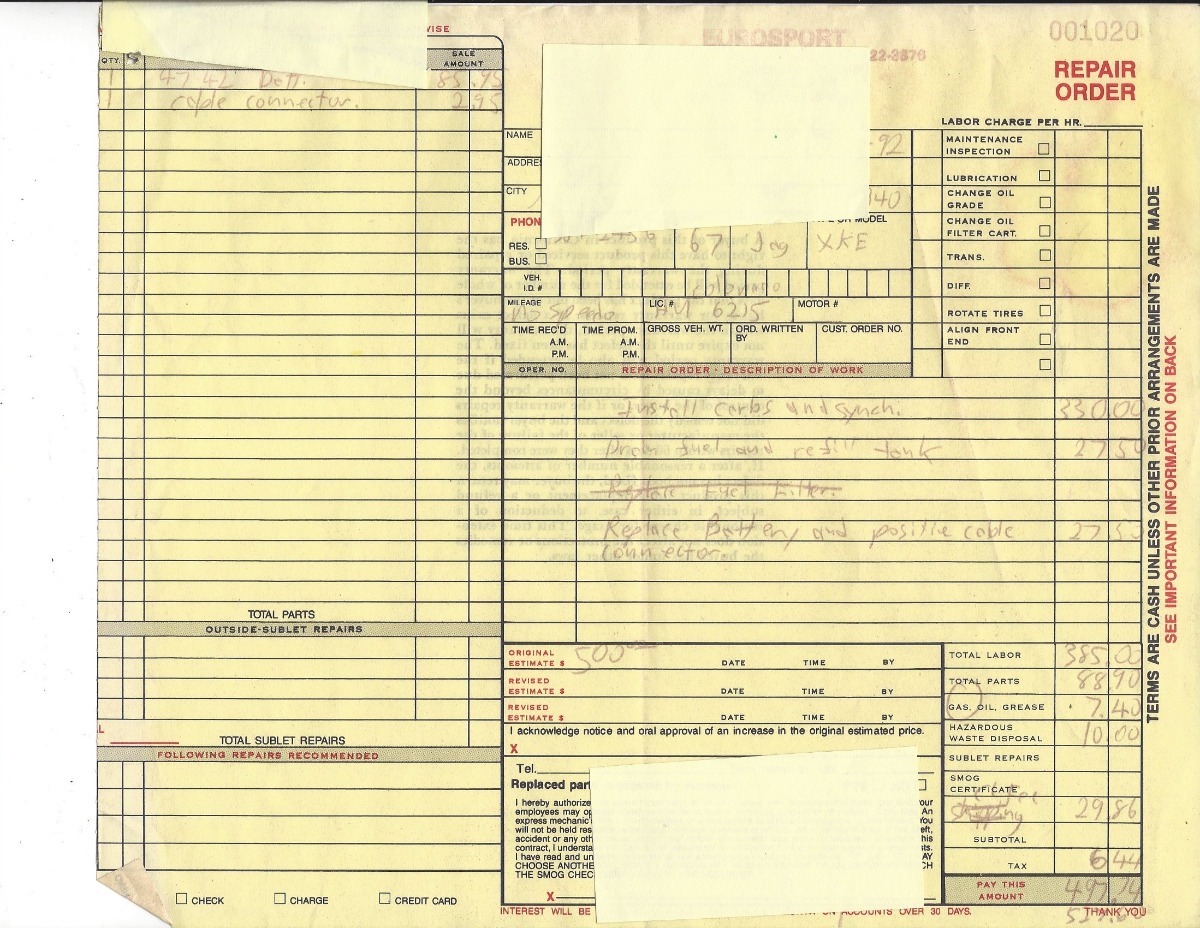 EUROSPORT
22-3876
001020
REPAIR
ORDER
VISE
QTY.
SALE
AMOUNT
1 47-42 Batt. 85.95
1 cable connector. 2.95
TOTAL PARTS
OUTSIDE-SUBLET REPAIRS
TOTAL SUBLET REPAIRS
FOLLOWING REPAIRS RECOMMENDED
CHECK
CHARGE
CREDIT CARD
LABOR CHARGE PER HR.
NAME
-92
ADDRE
CITY
PHON
RES.
BUS.
67
Jag
XKE
OR MODEL
VEH.
I.D. #
MILEAGE
No Speedo
LIC. #
6215
MOTOR #
TIME REC'D
A.M.
P.M.
TIME PROM.
A.M.
P.M.
GROSS VEH. WT.
ORD. WRITTEN
BY
CUST. ORDER NO.
OPER. NO.
REPAIR ORDER - DESCRIPTION OF WORK
MAINTENANCE
INSPECTION
LUBRICATION
CHANGE OIL
GRADE
CHANGE OIL
FILTER CART.
TRANS.
DIFF.
ROTATE TIRES
ALIGN FRONT
END
Install carbs and synch. 330.00
Drain fuel and refill tank 27.50
Replace Fuel Filter.
Replace Battery and positive cable 27.50
connector.
ORIGINAL
ESTIMATE $ 500.00 DATE TIME BY
REVISED
ESTIMATE $ DATE TIME BY
REVISED
ESTIMATE $ DATE TIME BY
I acknowledge notice and oral approval of an increase in the original estimated price.
X
Tel.
Replaced par
I hereby authorize
employees may op
express mechanic
will not be held res
accident or any oth
contract, I understa
I have read and un
CHOOSE ANOTHE
THE SMOG CHEC
X
INTEREST WILL BE
ON ACCOUNTS OVER 30 DAYS.
TOTAL LABOR 385.00
TOTAL PARTS 88.90
GAS, OIL, GREASE 7.40
HAZARDOUS
WASTE DISPOSAL 10.00
SUBLET REPAIRS
SMOG
CERTIFICATE
29.86
SUBTOTAL
TAX 6.44
PAY THIS
AMOUNT 497.74
THANK YOU
TERMS ARE CASH UNLESS OTHER PRIOR ARRANGEMENTS ARE MADE
SEE IMPORTANT INFORMATION ON BACK